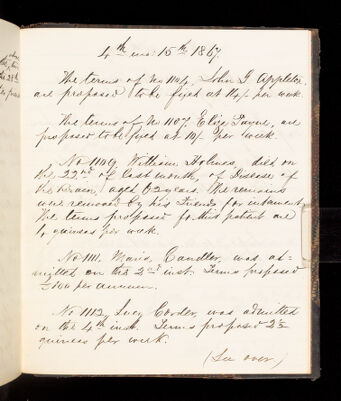 4th mo 15th 1867.
The terms of No 1104, John G Appleton,
are proposed to be fixed at 14/- per week.
The terms of No 1107, Eliza Payne, are
proposed to be fixed at 10/- per week.
No William Holmes, died on
the 22nd of last month, of Disease of
the Brain, aged 62 years. The remains
were removed by his friends for interment.
The terms proposed for this patient are
guineas per week.
No 1111. Maria Candler, was ad-
mitted on the 2nd inst. Terms proposed
£100 per annum.
No 1112, Lucy Corder, was admitted
on the 4th inst. Terms proposed 2½
guineas per week.
(See over)